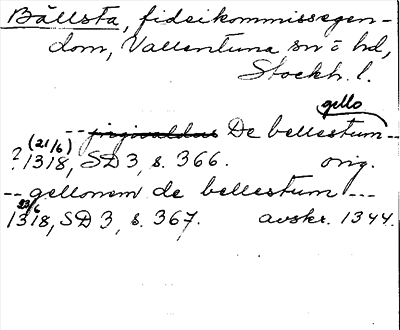 Bällsta, fideikommissegen-
dom, Vallentuna sn o hd,
Stockh. l.
gello
-- De bellestum --
(21/6)
? 1318, SD 3, s. 366. orig.
-- gellonem de bellestum ---
23/6
1318, SD 3, s. 367. avskr. 1344.